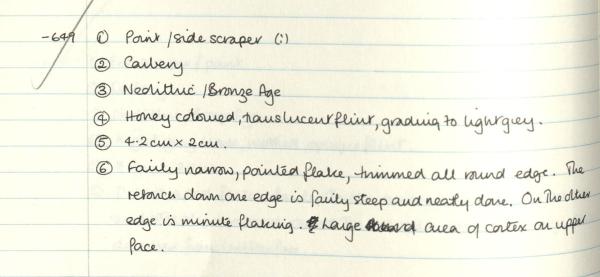 -649 ① Point / side scraper (:)
② Carbery
③ Neolithic / Bronze Age
④ Honey coloured, translucent flint, grading to light grey.
⑤ 4.2cm x 2cm.
⑥ Fairly narrow, pointed flake, trimmed all round edge. The
retouch down one edge is fairly steep and neatly done. On the other
edge is minute flaking. Large area of cortex on upper
face.